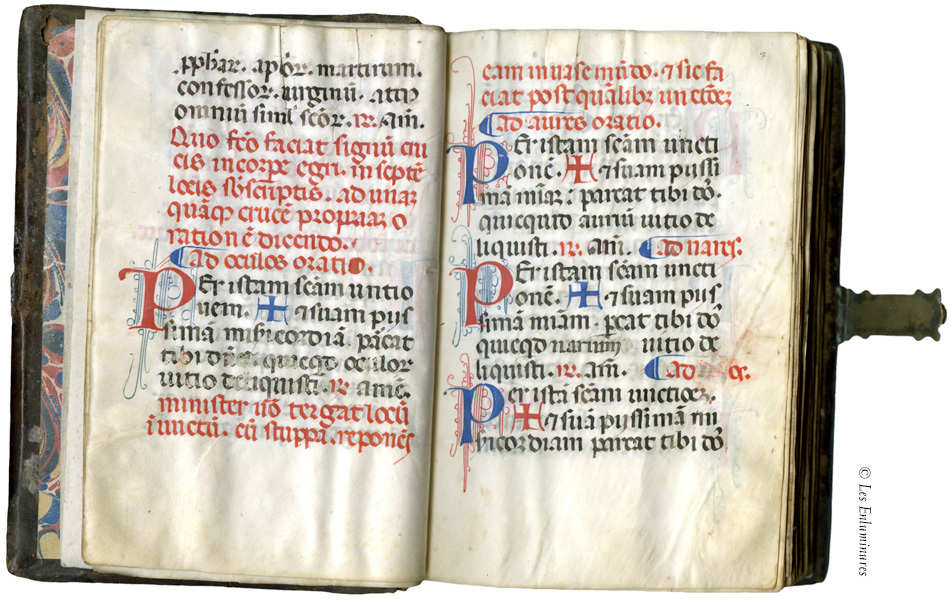 .pphar. aplor. martirum.
confessor. virginū. atq3
omniū simł scōr. R. am̄.
Quo fcō faciat signū cru
cis in corpe egri. in septē
locis sb̄scriptis. ad unā
quāq3 crucē propriaꝝ o
rationē dicendo.
Ad oculos oratio.
Per istam scām untio
nem. ✠ ⁊ suam piis
simā misīcordiā. parcat
tibi dn̄s quicqd oculoꝝ
uitio deliquisti. R. amē.
minister uō tergat locū
īunctū. cū stuppa. reponēs
eam in uase mūdo. ⁊ sic fa
ciat post quālibꝫ unctōeꝫ
Ad aures oratio.
Per istam scām uncti
onē. ✠ ⁊ suam piissi
mā miāꝫ. parcat tibi dō.
quicquid auriū uitio de
liquisti. R. am̄. Ad nares.
Per istam scām uncti
onē. ✠ ⁊ suam piis
simā miam. pcat tibi dō
quicqd narium uitio de
liquisti. R. am̄. Ad
Per istā scām unctioēꝫ.
✠ ⁊ suā piissimā mi
sicordiam parcat tibi dō
© Les Enluminures